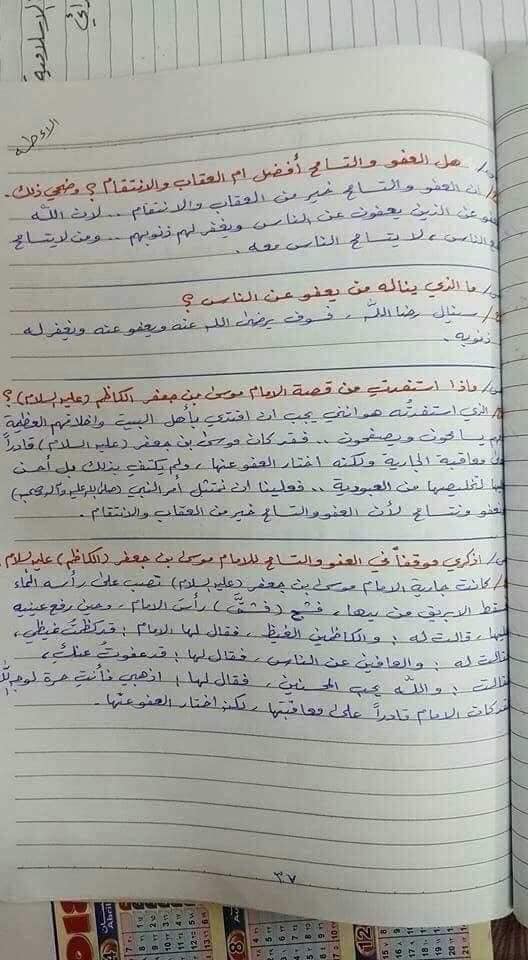 الإسلامية
هل العفو والتسامح أفضل ام العقاب والانتقام ؟ وضحي ذلك .
ان العفو والتسامح خير من العقاب والانتقام .. لان الله
عن الذين يعفون عن الناس ويغفر لهم ذنوبهم .. ومن لايتسامح
الناس ، لا يتسامح الناس معه .
ما الذي يناله من يعفو عن الناس ؟
سينال رضا الله ، فسوف يرضى الله عنه ويعفو عنه ويغفر له
ذنوبه .
ماذا استفدتِ من قصة الامام موسى بن جعفر الكاظم (عليه السلام) ؟
الذي استفدته هو انني يجب ان اقتدي بأهل البيت واخلاقهم العظمة
يسامحون ويصفحون .. فقد كان موسى بن جعفر (عليه السلام) قادراً
معاقبة الجارية ولكنه اختار العفو عنها ، ولم يكتفِ بذلك بل أحسن
لتخليصها من العبودية .. فعلينا ان نمتثل أمر النبي (صلى الله عليه وآله وصحبه)
ونتسامح لأن العفو والتسامح خير من العقاب والانتقام .
اذكري موقفاً في العفو والتسامح للامام موسى بن جعفر (الكاظم) عليه السلام
كانت جارية الامام موسى بن جعفر (عليه السلام) تصب على رأسه الماء
الابريق من يدها ، فشج (فشقَّ) رأس الامام ، وحين رفع عينيه
قالت له : والكاظمين الغيظ ، فقال لها الامام : قد كظمتُ غيظي ،
له : والعافين عن الناس ، فقال لها : قد عفوت عنكِ ،
: والله يحب المحسنين ، فقال لها : اذهبي فأنتِ حرة لوجه الله
كان الامام قادراً على معاقبتها ، لكنه اختار العفو عنها .
٣٧